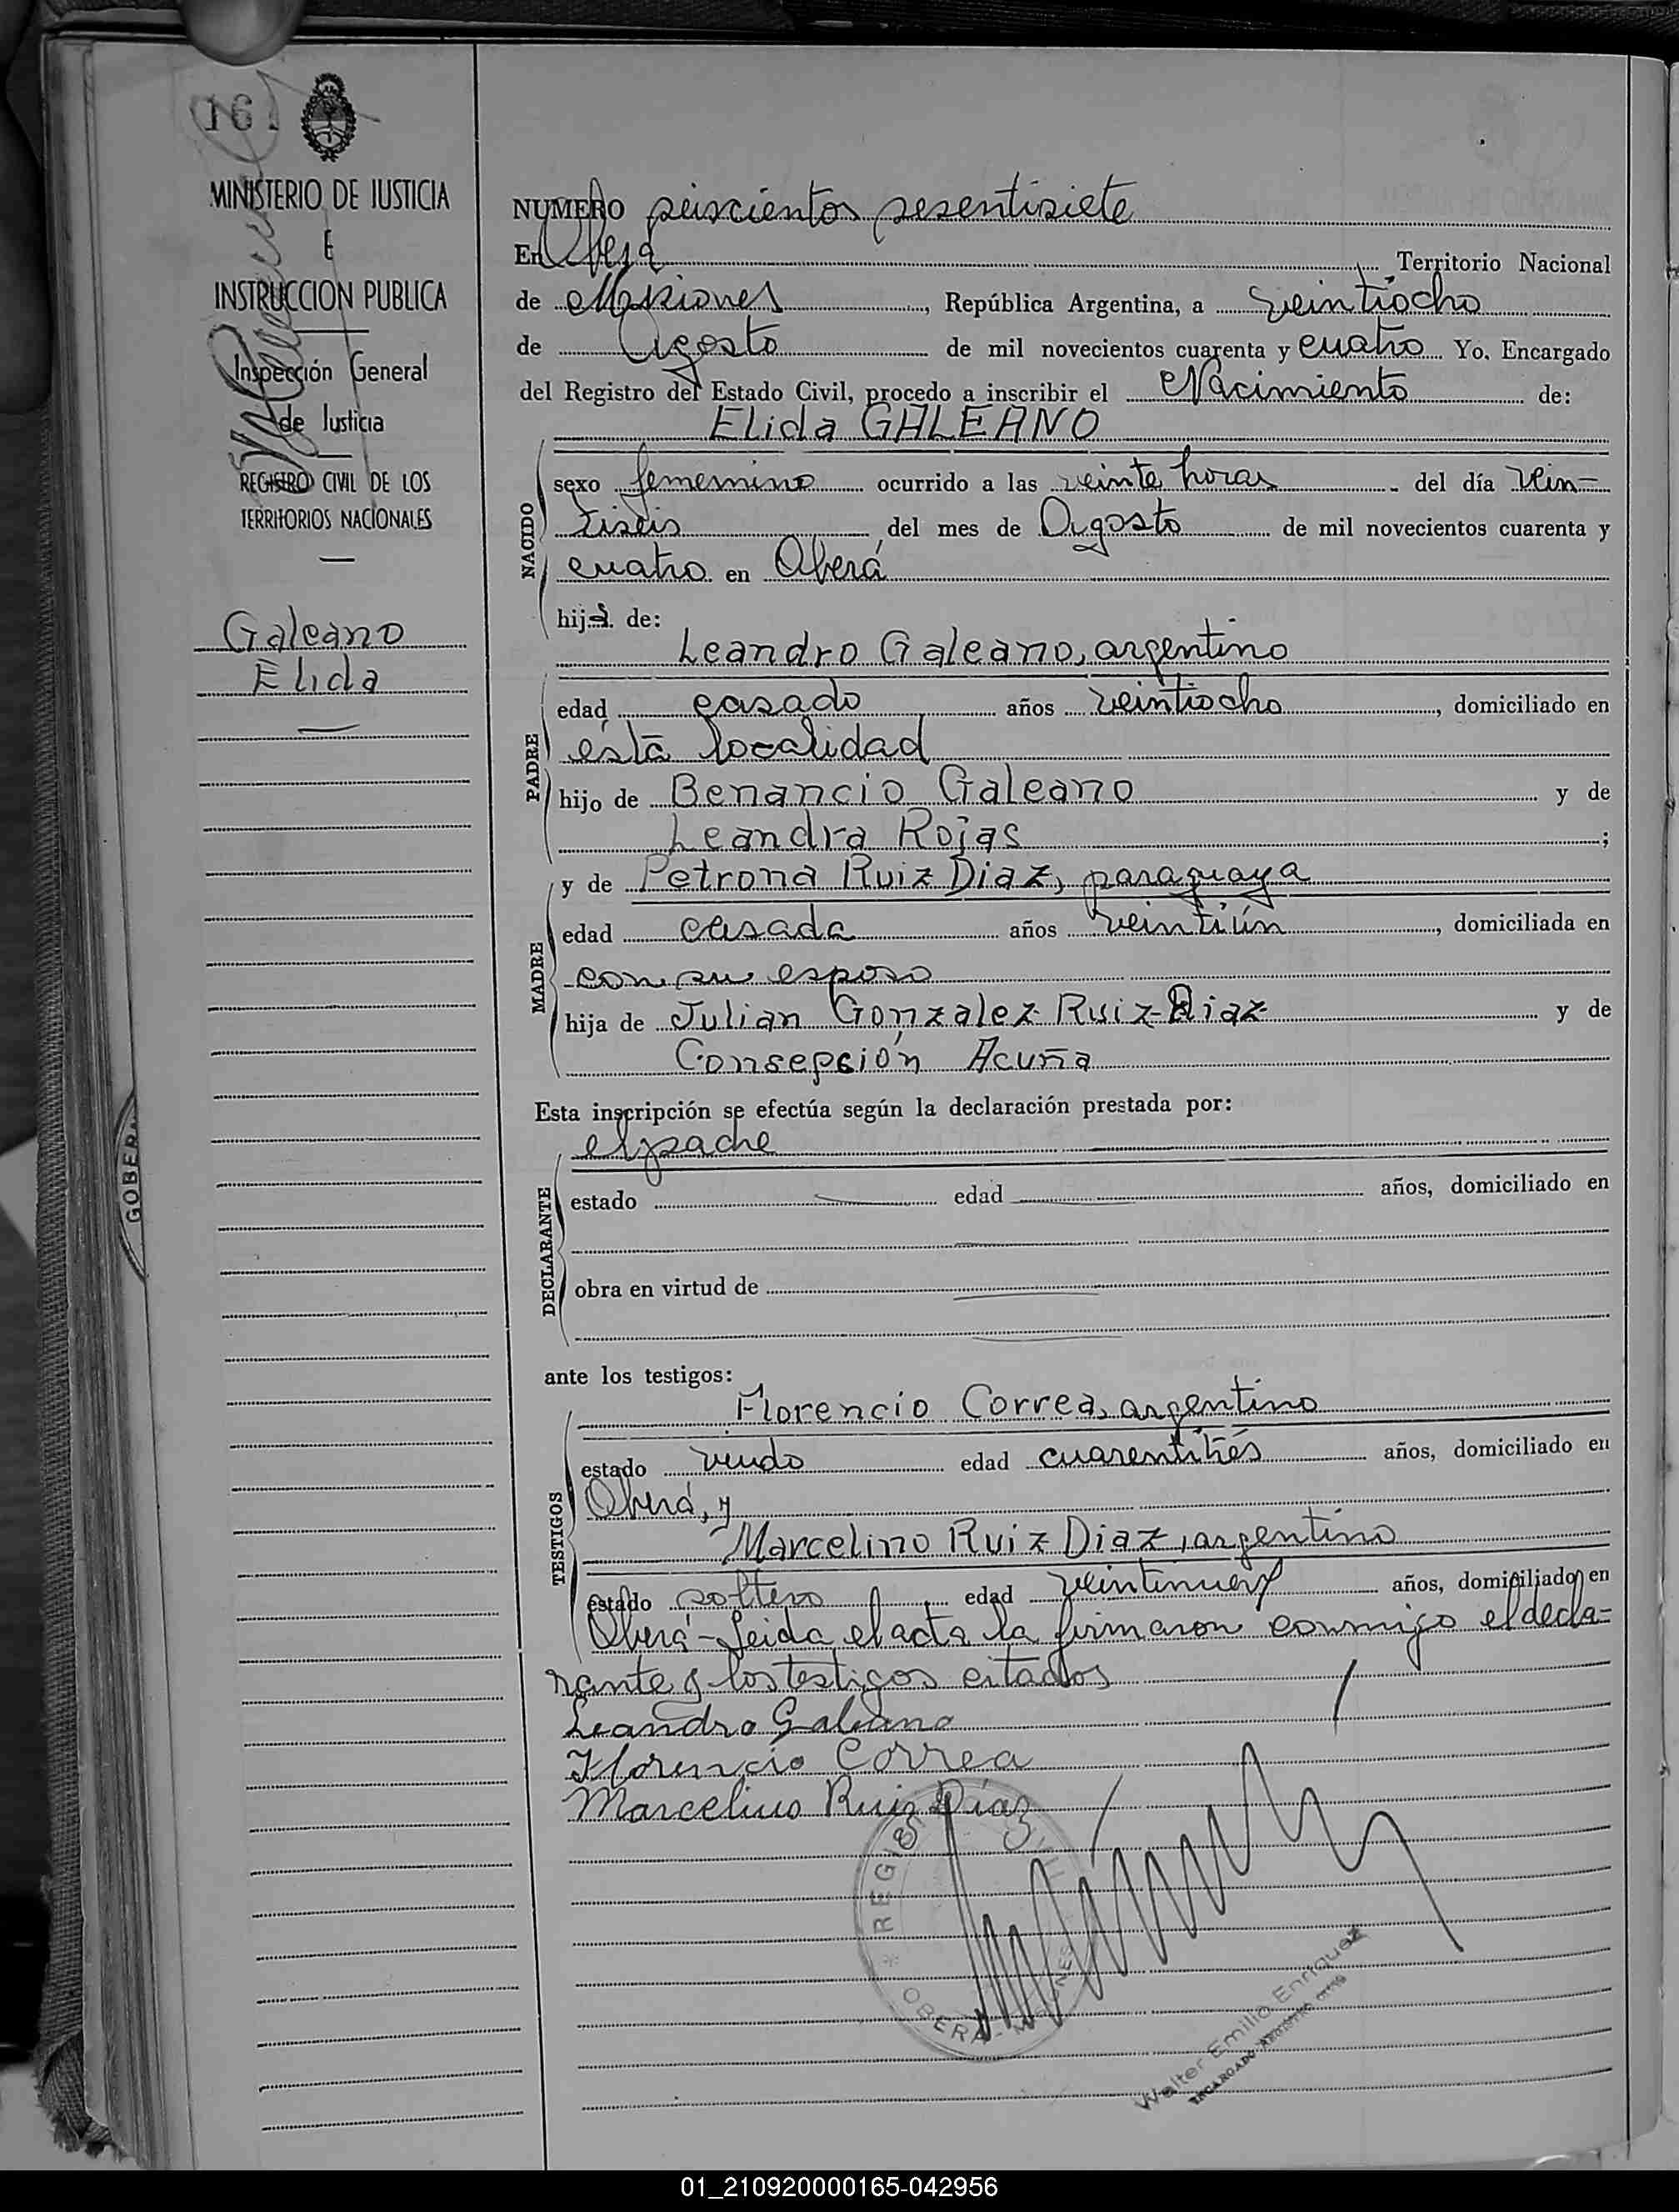 161
MINISTERIO DE JUSTICIA
E
INSTRUCCION PUBLICA
Inspección General
de Justicia
REGISTRO CIVIL DE LOS
TERRITORIOS NACIONALES
Galeano
Elida
GOBER
NUMERO seiscientos sesentisiete
En Oberá Territorio Nacional
de Misiones, República Argentina, a veintiocho
de Agosto de mil novecientos cuarenta y cuatro Yo. Encargado
del Registro del Estado Civil, procedo a inscribir el Nacimiento de:
Elida GALEANO
NACIDO
sexo femenino ocurrido a las veinte horas del día vein-
tiseis del mes de Agosto de mil novecientos cuarenta y
cuatro en Oberá
hija de:
Leandro Galeano, argentino
PADRE
edad casado años veintiocho, domiciliado en
ésta localidad
hijo de Benancio Galeano y de
Leandra Rojas;
y de Petrona Ruiz Diaz, paraguaya
MADRE
edad casada años veintiún, domiciliada en
con su esposo
hija de Julian Gonzalez Ruiz-Diaz y de
Consepción Acuña
Esta inscripción se efectúa según la declaración prestada por:
el padre
DECLARANTE
estado edad años, domiciliado en
obra en virtud de
ante los testigos:
Florencio Correa, argentino
TESTIGOS
estado viudo edad cuarentitrés años, domiciliado en
Oberá, y
Marcelino Ruiz Diaz, argentino
estado soltero edad veintinueve años, domiciliado en
Oberá - Leida el acta la firmaron conmigo el decla-
rante y los testigos citados
Leandro Galeano
Florencio Correa
Marcelino Ruiz Díaz
REGIS
OBERA - MISIONES
Walter Emilio Enriquez
ENCARGADO REGISTRO CIVIL
01_210920000165-042956